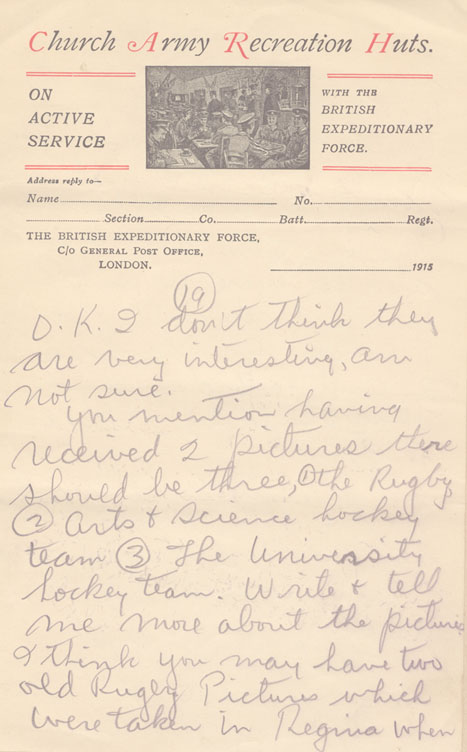 Church Army Recreation Huts.
ON
ACTIVE
SERVICE
WITH THE
BRITISH
EXPEDITIONARY
FORCE.
Address reply to—
Name No.
Section Co. Batt. Regt.
THE BRITISH EXPEDITIONARY FORCE,
C/o GENERAL POST OFFICE,
LONDON.
1915
19
O.K. I don't think they
are very interesting, am
not sure.
You mention having
received 2 pictures there
should be three, ① the Rugby
② Arts & Science hockey
team ③ The University
hockey team. Write & tell
me more about the pictures
I think you may have two
old Rugby Pictures which
were taken in Regina when